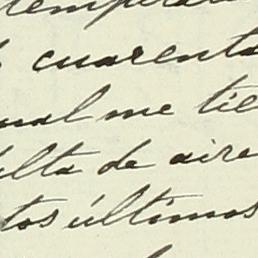 tempera
cuarenta
ual me tie
lta de aire
tos últimos